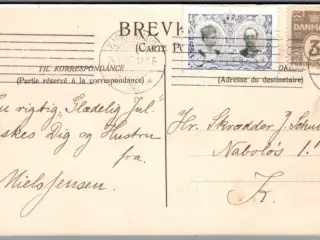 BREVK
(CARTE PO
TIL KORRESPONDANCE
(Partie réservé à la correspondance)
(Adresse du destinataire)
DANMARK
3
En rigtig „Glædelig Jul"
nskes Dig og Hustru
fra
Niels Jensen.
Hr. Skrædder J. Schu
Naboløs 1.
Fr.